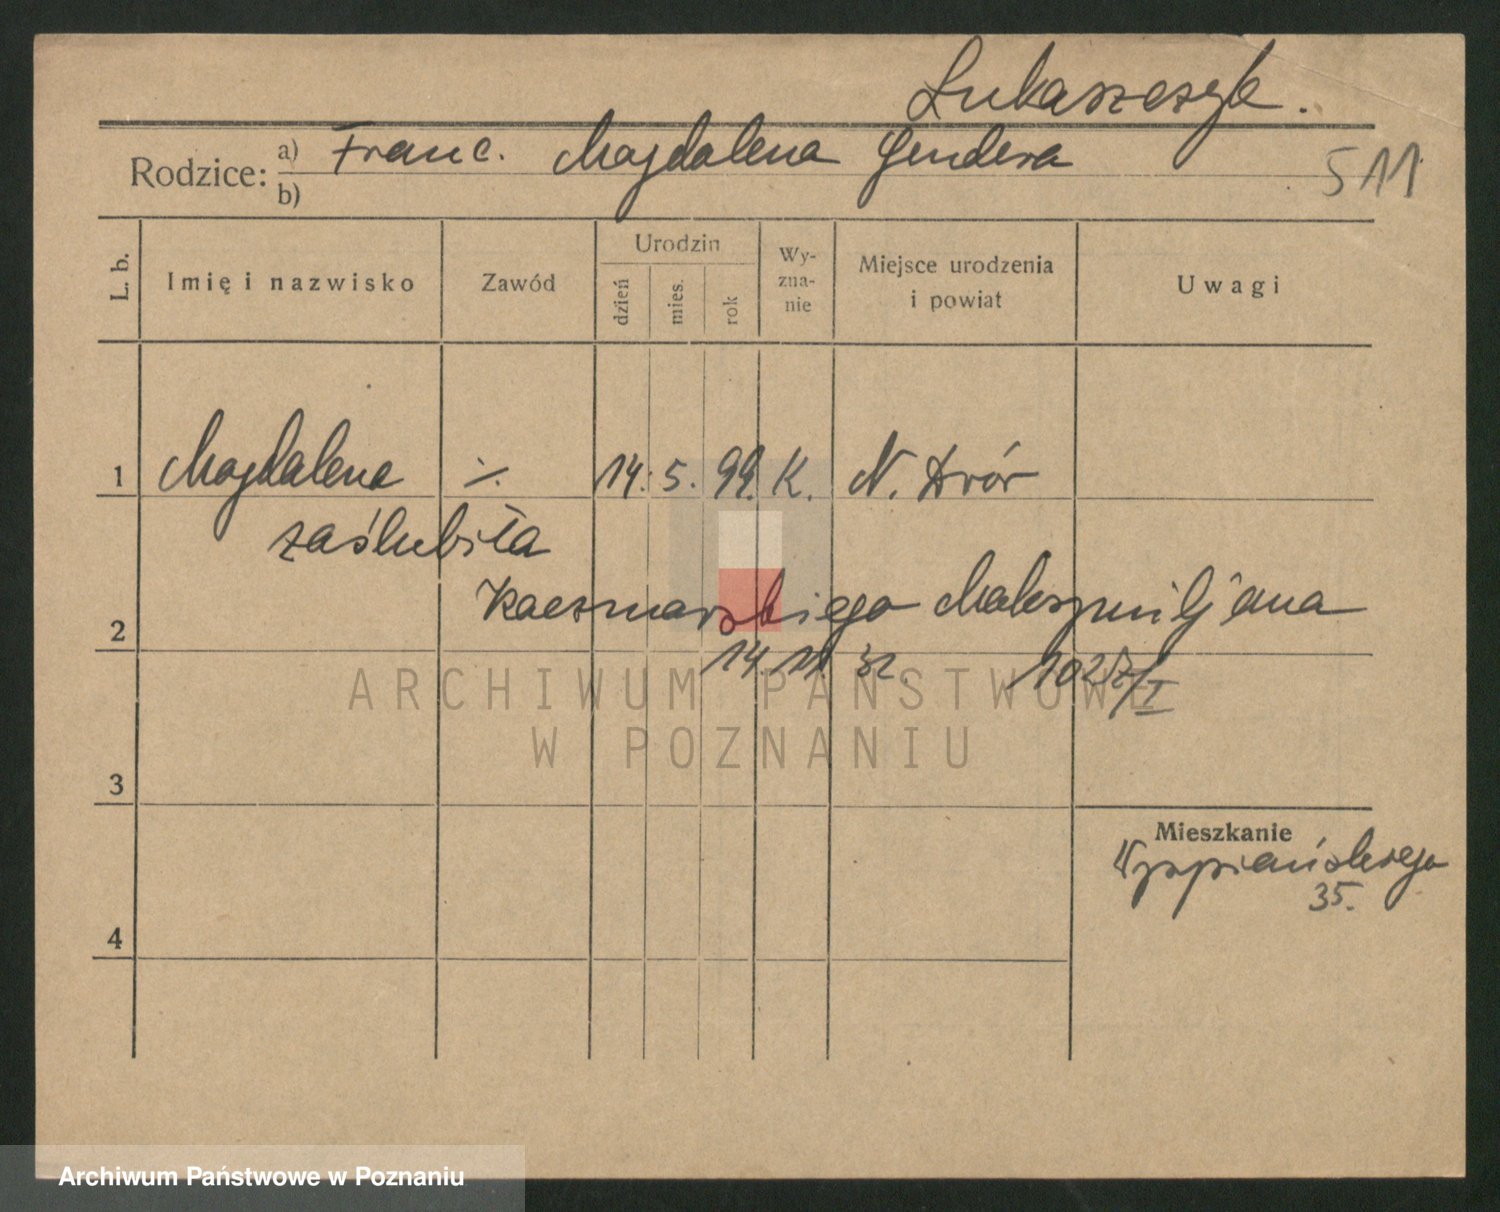 Lukaszczyk.
Rodzice: a) Franc. Magdalena Gendera
b)
511
L. b.
Imię i nazwisko
Zawód
Urodzin
dzień
mies.
rok
Wy-
zna-
nie
Miejsce urodzenia
i powiat
Uwagi
1 Magdalena ·/. 14. 5. 99. K. N. Dwór
zaślubiła
2 Kaczmarskiego Maksymiljana
14. 11. 32.
ARCHIWUM PAŃSTWOWE
W POZNANIU
3
Mieszkanie
Wyspiańskiego
35.
4
Archiwum Państwowe w Poznaniu